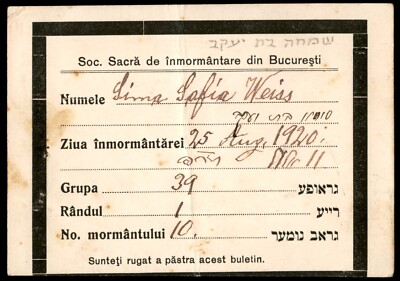 שמחה בת יעקב
Soc. Sacră de înmormântare din București
Numele Sima Safia Weiss
Ziua înmormântărei 25 Aug. 1920
11
Grupa 39 גראופע
Rândul 1 רייע
No. mormântului 10. גראב נומער
Sunteți rugat a păstra acest buletin.